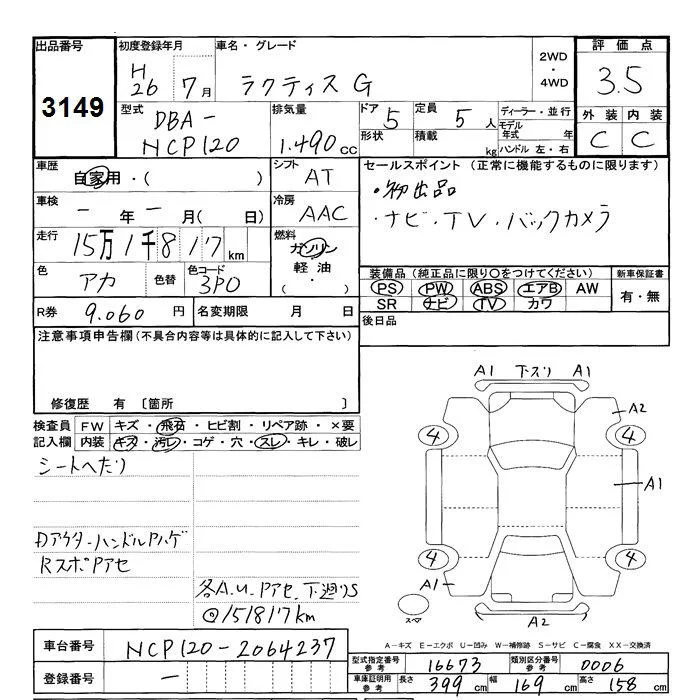 出品番号 3149
初度登録年月 H26 7月
車名・グレード ラクティス G
2WD・4WD
評価点 3.5
外装 内装
C C
型式 DBA-NCP120
排気量 1.490cc
ドア 5
形状
定員 5人
積載 kg
ディーラー・並行
モデル年式 年
ハンドル 左・右
車歴 自家用・( )
シフト AT
セールスポイント (正常に機能するものに限ります)
・初出品
・ナビ・TV・バックカメラ
車検 ー年ー月(日)
冷房 AAC
走行 15万1千817km
燃料 ガソリン 軽油・( )
色 アカ 色替
色コード 3P0
装備品 (純正品に限り〇をつけてください)
新車保証書
PS PW ABS エアB AW
有・無
SR ナビ TV カワ
R券 9.060円
名変期限 月 日
後日品
注意事項申告欄 (不具合内容等は具体的に記入して下さい)
修復歴 有 〔箇所 〕
検査員記入欄
FW キズ・飛石・ヒビ割・リペア跡・×要
内装 キズ・汚レ・コゲ・穴・スレ・キレ・破レ
シートヘたり
Dアウターハンドルハゲ
RスポPアセ
各A.U.Pアセ.下廻りS
◎151817km
A1 下スリ A1
A2
4 4
A1
4 4
A1
スペア
A2
A-キズ E-エクボ U-凹み W-補修跡 S-サビ C-腐食 XX-交換済
車台番号 NCP120-2064237
登録番号 ー
型式指定番号 参考 16673
類別区分番号 参考 0006
車庫証明用 参考 長さ 399cm 幅 169cm 高さ 158cm